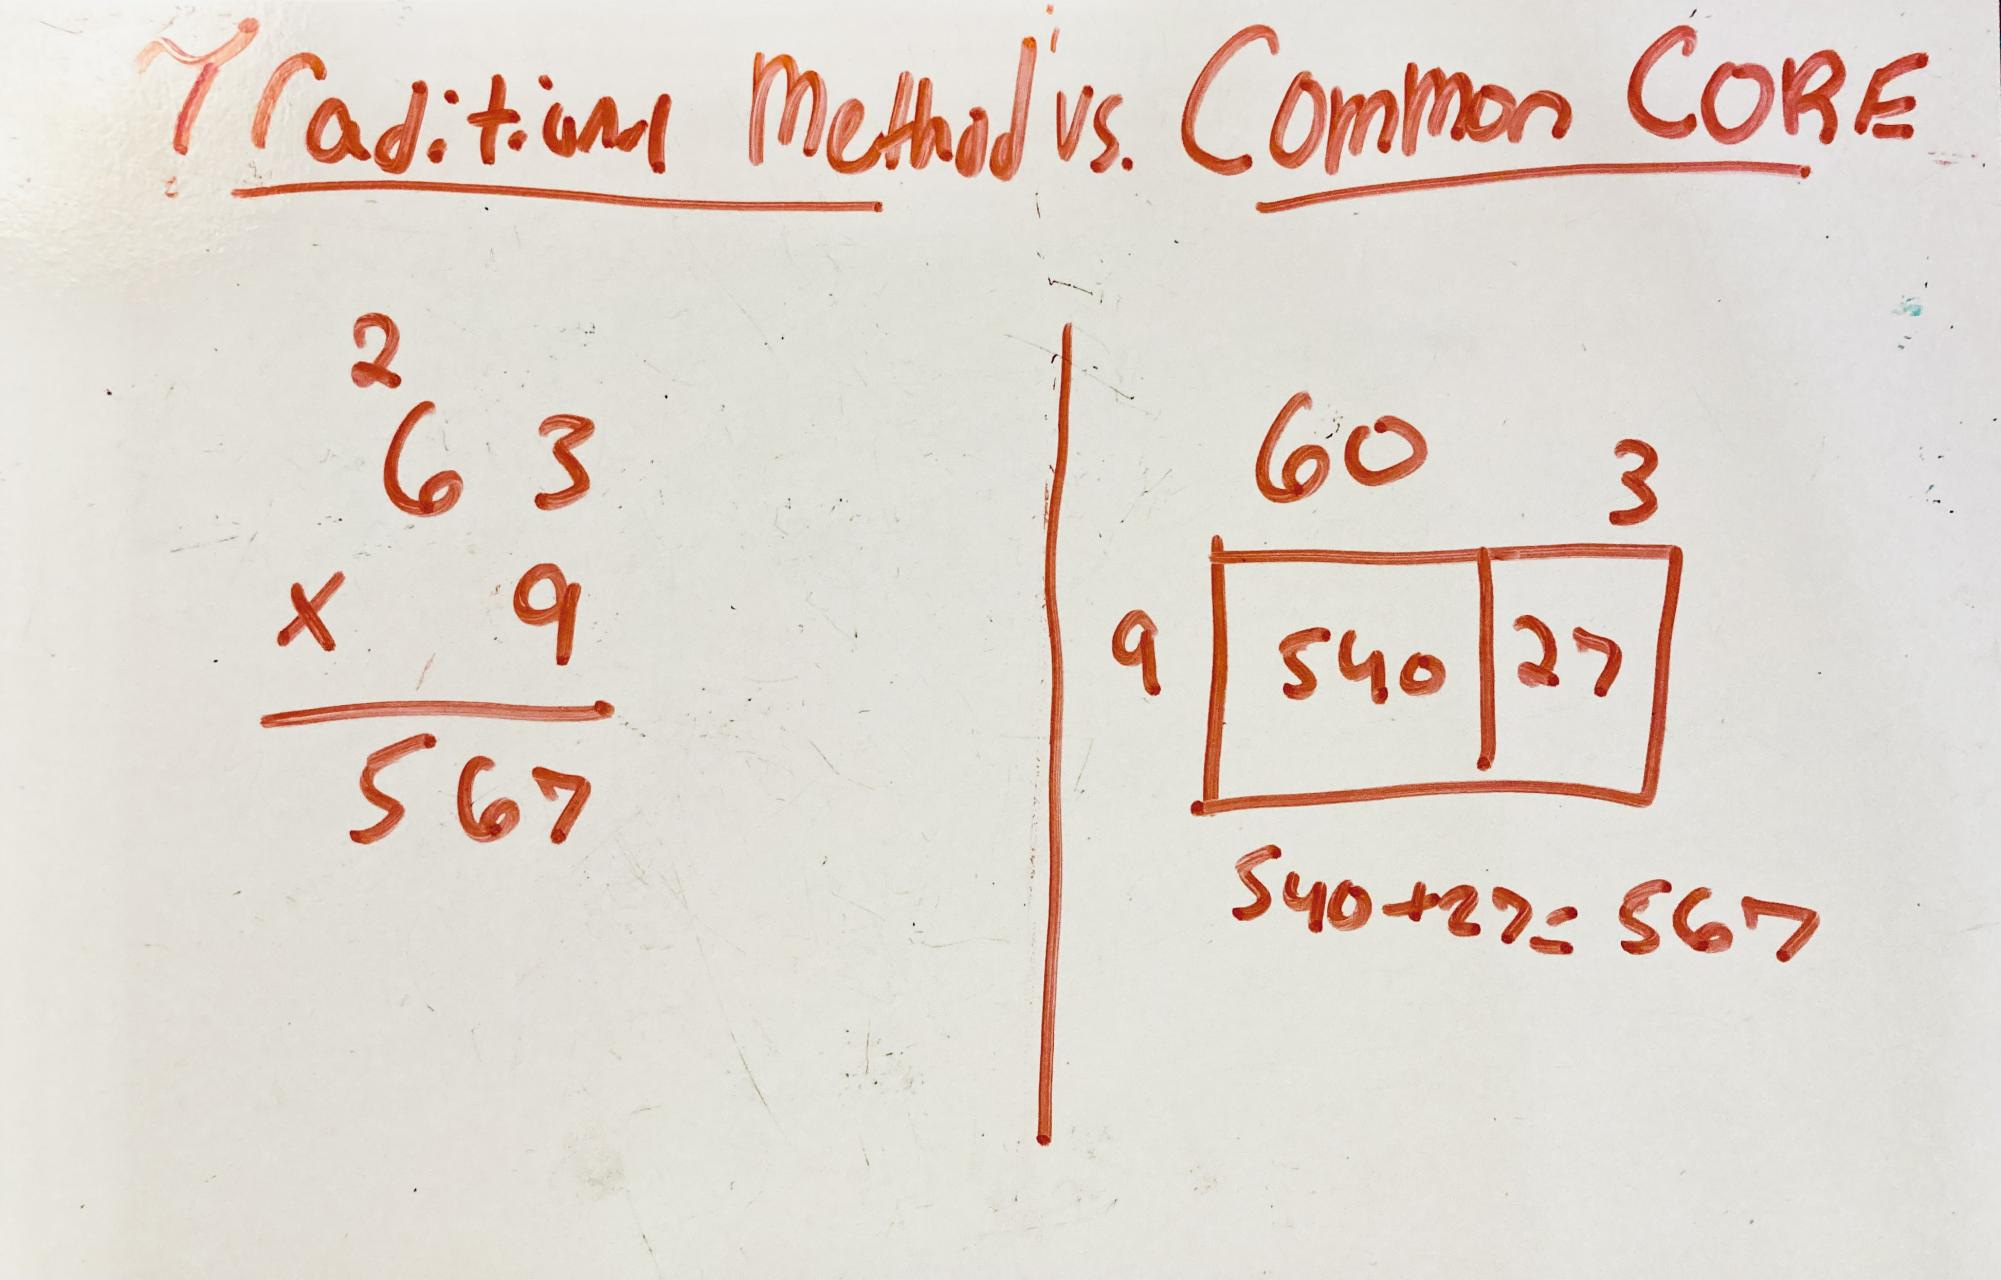 Traditional Method vs. Common CORE
2
63
x 9
567
60 3
9 540 27
540+27= 567